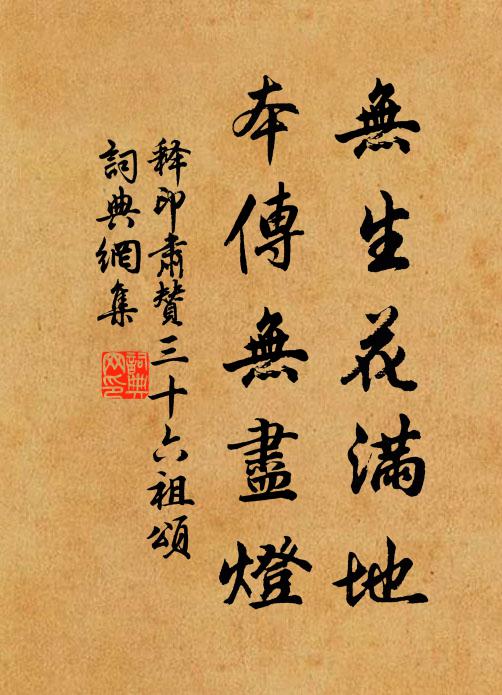 無生花滿地
本傳無盡燈
释印肅贊三十六祖頌
詞典網集
詞典網印